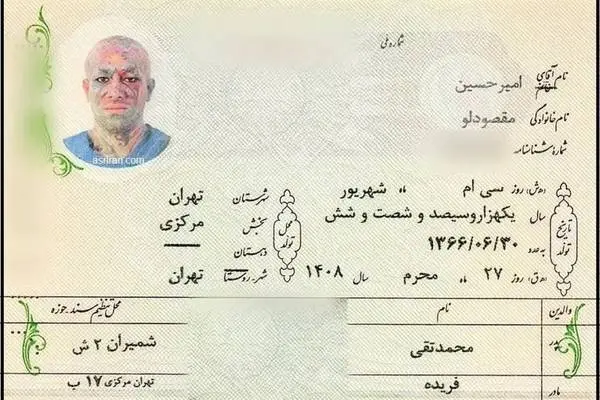 شماره ملی
نام آقای امیرحسین
نام خانوادگی مقصودلو
شماره شناسنامه
تاریخ تولد
ه‍.ش: روز سی ام ماه شهریور
سال یکهزاروسیصد و شصت و شش
به عدد ۱۳۶۶/۰۶/۳۰
ه‍.ق: روز ۲۷ ماه محرم سال ۱۴۰۸
محل تولد
شهرستان تهران
بخش مرکزی
دهستان
شهر-روستا تهران
والدین نام محل تنظیم سند-حوزه
پدر محمدتقی شمیران ۲ ش
مادر فریده تهران مرکزی ۱۷ ب
asriran.com